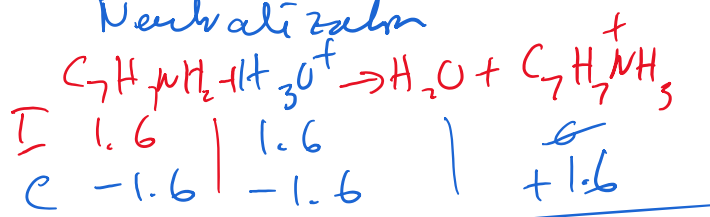 Neutralization
C₇H₇NH₂ + H₃O⁺ → H₂O + C₇H₇NH₃⁺
I 1.6 | 1.6 | 0
C -1.6 | -1.6 | +1.6